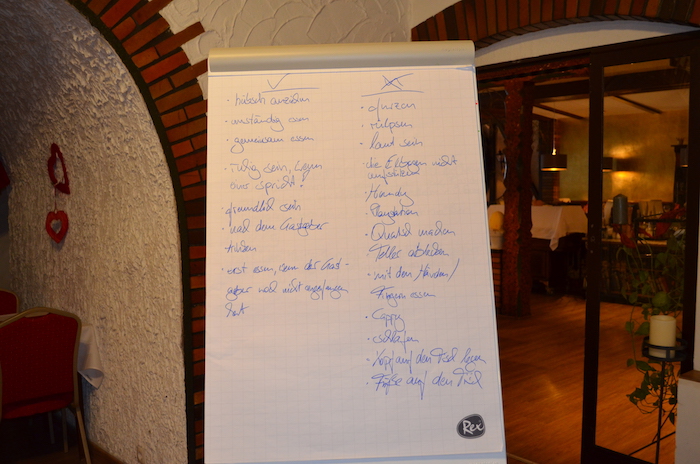 · hübsch anziehen
· anständig
· gemeinsam essen
· ruhig sein, wenn
einer spricht!
freundlich sein
· nach dem Gastgeber
trinken
· erst essen, wenn der Gast-
geber noch nicht angefangen
hat
· rülpsen
· laut sein
· die Ellbogen nicht
· Handy
· Playstation
· Quatsch machen
· Teller ablecken
· mit den Händen/
Fingern essen
· Cappy
· schlafen
· Kopf auf den Tisch legen
· Füße auf den Tisch
Rex